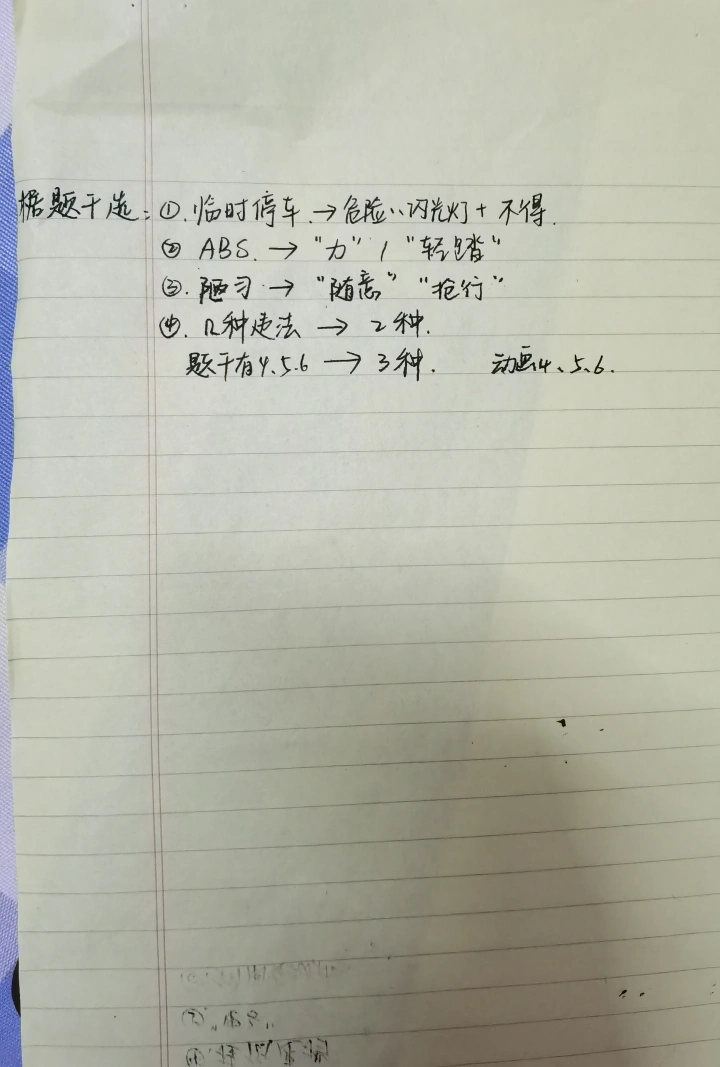 据题干选：①.临时停车.→危险..闪光灯+不得.
② ABS.→"力"/"轻踏"
③.陋习→"随意""抢行"
④.几种违法→2种.
题干有4、5、6→3种. 动画4、5、6.